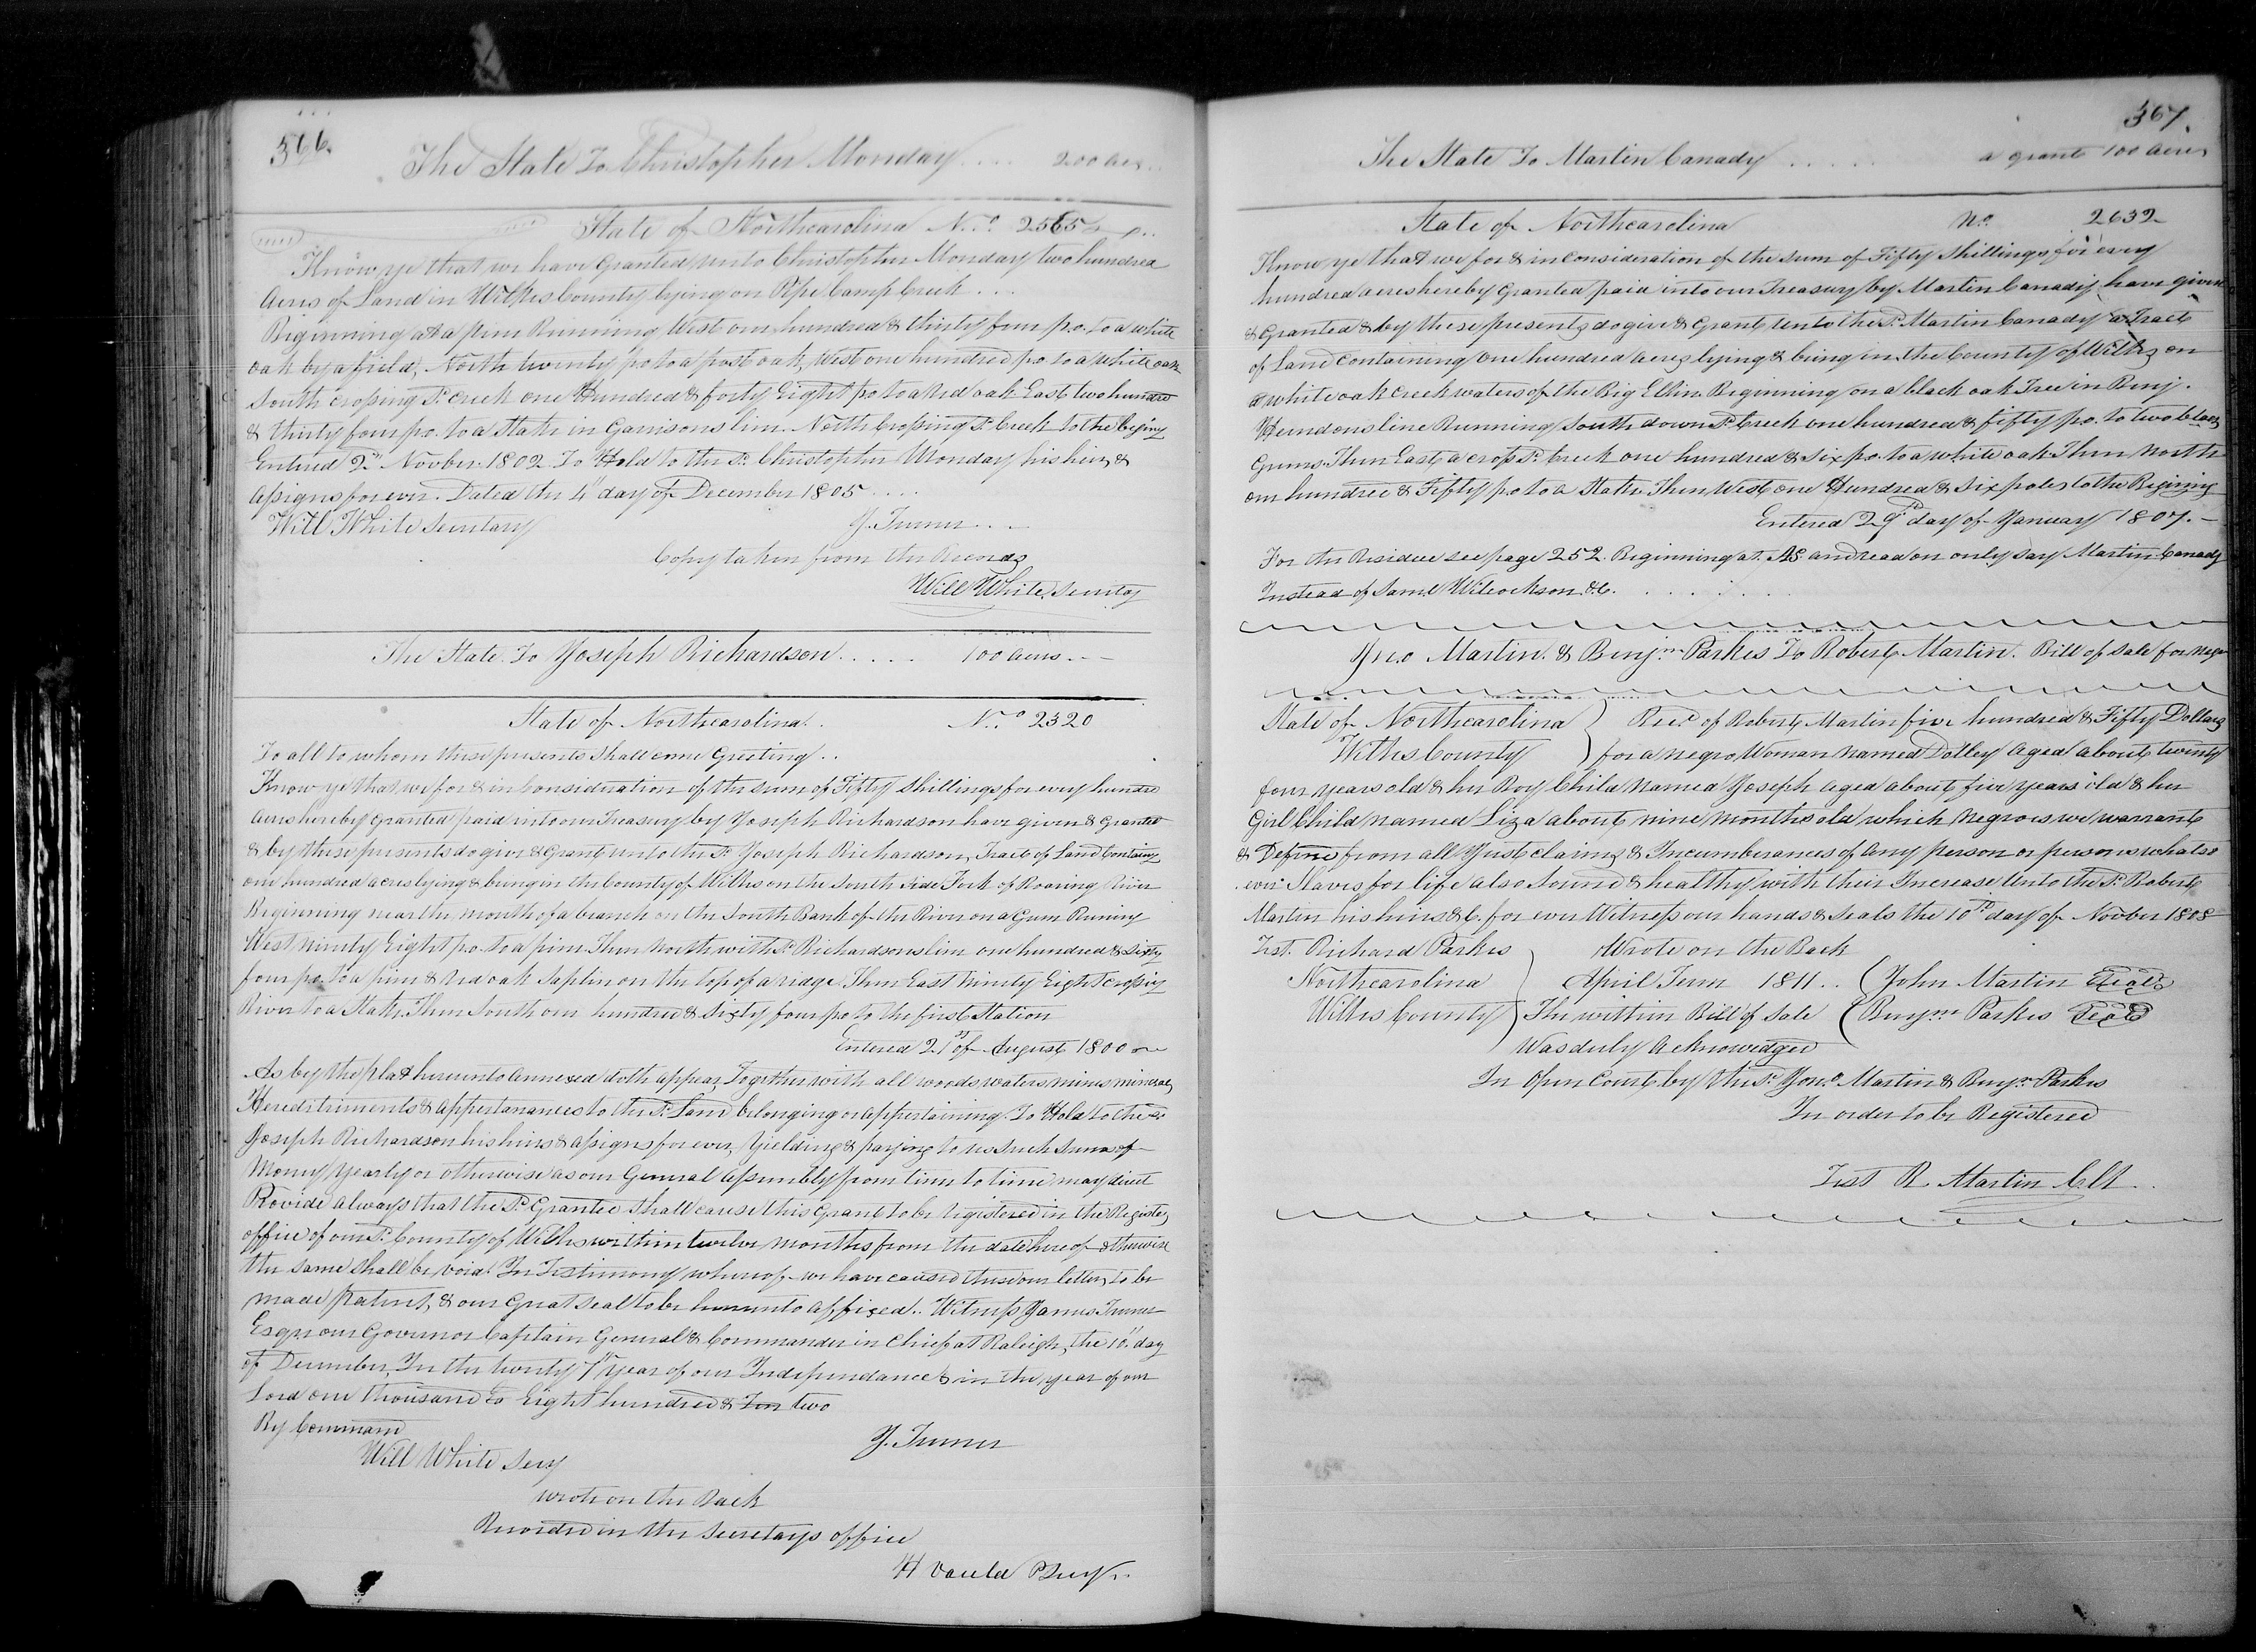 566.
The State To Christopher Monday .... 200 acrs ..
State of Northcarolina N.o 2565
Know ye that we have Granted unto Christopher Monday two hundred
Acres of Land in Wilkes County lying on Pipe Camp Creek ...
Beginning at a pine Running West one hundred & thirty four po. to a white
oak by a field, North twenty po to a post oak, West one hundred po. to a white oak
South crossing sd. creek one Hundred & forty Eight po to a red oak East two hundred
& thirty four po. to a Stake in Garrisons line. North Crossing sd Creek to the begining
Entered 2nd Novber. 1802. To Hold to the sd. Christopher Monday his heirs &
Assigns for ever. Dated the 4th day of December 1805 ....
Will White Secretary J. Turner ...
Copy taken from the Records
Will White, Secretay
The State To Joseph Richardson ..... 100 acres ...
State of Northcarolina. N.o 2320
To all to whom these presents Shall come Greeting ..
Know ye that we for & in Consideration of the sum of Fifty Shillings for every hundred
Acres hereby granted paid into our Treasury by Joseph Richardson have given & Granted
& by these presents do give & Grant unto the sd. Joseph Richardson, Tract of Land Containg
one hundred acres lying & being in the County of Wilkes on the South Side Fork of Roaring River
Beginning near the mouth of a branch on the South Bank of the River on a Gum Runing
West ninety Eight po. to a pine. Then North with sd. Richardsons line one hundred & Sixty
four po. to a pine & red oak Saplin on the top of a ridge. Then East Ninety Eight crossing
River to a Stake. Then South one hundred & Sixty four po to the first Station
Entered 21st of August 1800
As by the plat hereunto annexed doth appear, Together with all woods waters mines minerals
Hereditiments & appertanances to the sd. Land belonging or appertaining. To Hold to the sd
Joseph Richardson his heirs & Assigns for ever, Yielding & paying to us Such Sums of
Money Yearly or otherwise as our General Assembly from time to time may direct
Provide always that the sd. Grantee Shall cause this Grant to be registered in the Register,
office of our sd. County of Wilkes within twelve months from the date hereof otherwise
the same Shall be void. In Testimony whereof we have caused these our letters to be
made patent, & our Great Seal to be hereunto affixed.. Witness James Turner
Esqr our Governor Captain General & Commander in Chief at Raleigh, the 10th day
of December, In the twenty 7th Year of our Independance & in the year of our
Lord one thousand Eight hundred & two
By Command
Will White Secy J. Turner
wrote on the Back
Recorded in the Secretays office
567.
The State To Martin Canady ..... a grant 100 acres
State of Northcarolina No. 2632
Know ye that we for & in Consideration of the sum of Fifty Shillings for every
hundred acres hereby Granted paid into our Treasury by Martin Canady, have given
& Granted & by these presents do give & Grant unto the sd. Martin Canady a Tract
of Land containing one hundred acres lying & being in the County of Wilkes on
a white oak Creek waters of the Big Elkin. Beginning on a black oak Tree in Benj.
Herndons line Running South down sd. Creek one hundred & fifty po. to two black
Gums. Then East, across sd. Creek one hundred & Six po. to a white oak. Then North
one hundred & Fifty po to a Stake. Then West one Hundred & Six poles to the Begining
Entered 29th day of January 1807. -
For the Residue see page 252. Beginning at. As. and read on only say Martin Canady
Instead of Saml. Wilcockson &C. .......
Jno Martin. & Benjmn. Parkes To Robert Martin. Bill of Sale for Negro
State of Northcarolina Recd. of Robert Martin five hundred & Fifty Dollars
Wilkes County for a negro Woman named Dolley Aged about twenty
four years old & her Boy Child named Joseph aged about five years old & her
Girl Child named Liza about nine months old which Negroes we warrant
& Defind from all Just claims & Incumberances of any person or persons whatso
ever. Slaves for life also Sound & healthy with their Increase unto the sd. Robert
Martin his heirs &C. for ever Witness our hands & Seals the 10th day of Novber 1808
Test. Richard Parkes Wrote on the Back
Northcarolina April Term 1811 .. John Martin Seal
Wilkes County The within Bill of Sale Benjmn Parkes Seal
Was duly Acknowedged
In Open Court by the sd. Jon.o Martin & Benjn. Parkes
In order to be Registered
Test R. Martin Clk ..